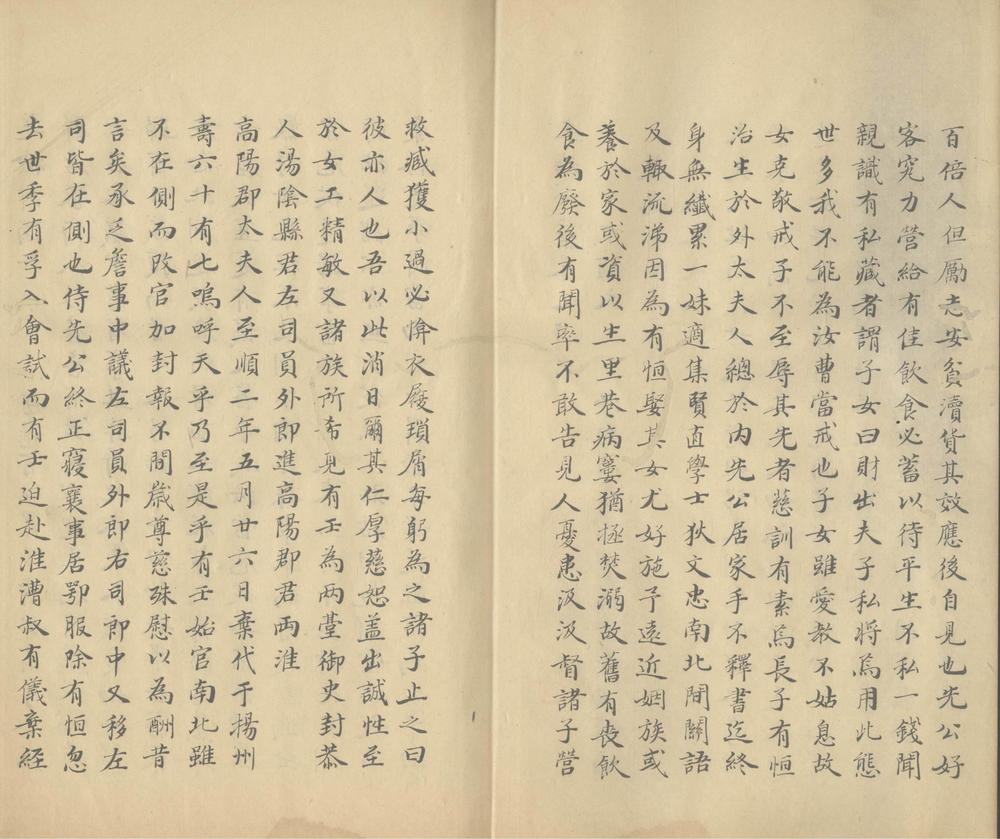 百倍人但厲志安貧瀆貨其效應後自見也先公好
客窕力營給有佳飲食必蓄以待平生不私一錢聞
親識有私藏者謂子女曰財出夫子私將焉用此態
世多我不能為汝曹當戒也子女雖愛教不姑息故
女克敬戒子不至辱其先者慈訓有素焉長子有恒
治生於外太夫人總於內先公居家手不釋書迄終
身無纖累一妹適集賢直學士狄文忠南北間關語
及輙流涕因為有恒娶其女尤好施予遠近姻族或
養於家或資以生里巷病窶猶拯焚溺故舊有喪飲
食為廢後有聞率不敢告見人憂患汲汲督諸子營
救臧獲小過必惜衣屨瑣屑每躬為之諸子止之曰
彼亦人也吾以此消日爾其仁厚慈恕盖出誠性至
於女工精敏又諸族所希見有壬為两臺御史封恭
人湯陰縣君左司員外郎進高陽郡君両淮
高陽郡太夫人至順二年五月廿六日棄代于揚州
壽六十有七嗚呼天乎乃至是乎有壬始官南北雖
不在側而改官加封報不間歲尊慈殊慰以為酬昔
言矣承乏詹事中議左司員外郎右司郎中又移左
司皆在側也侍先公終正寢襄事居鄂服除有恒忽
去世季有孚入會試而有壬迫赴淮漕叔有儀棄經